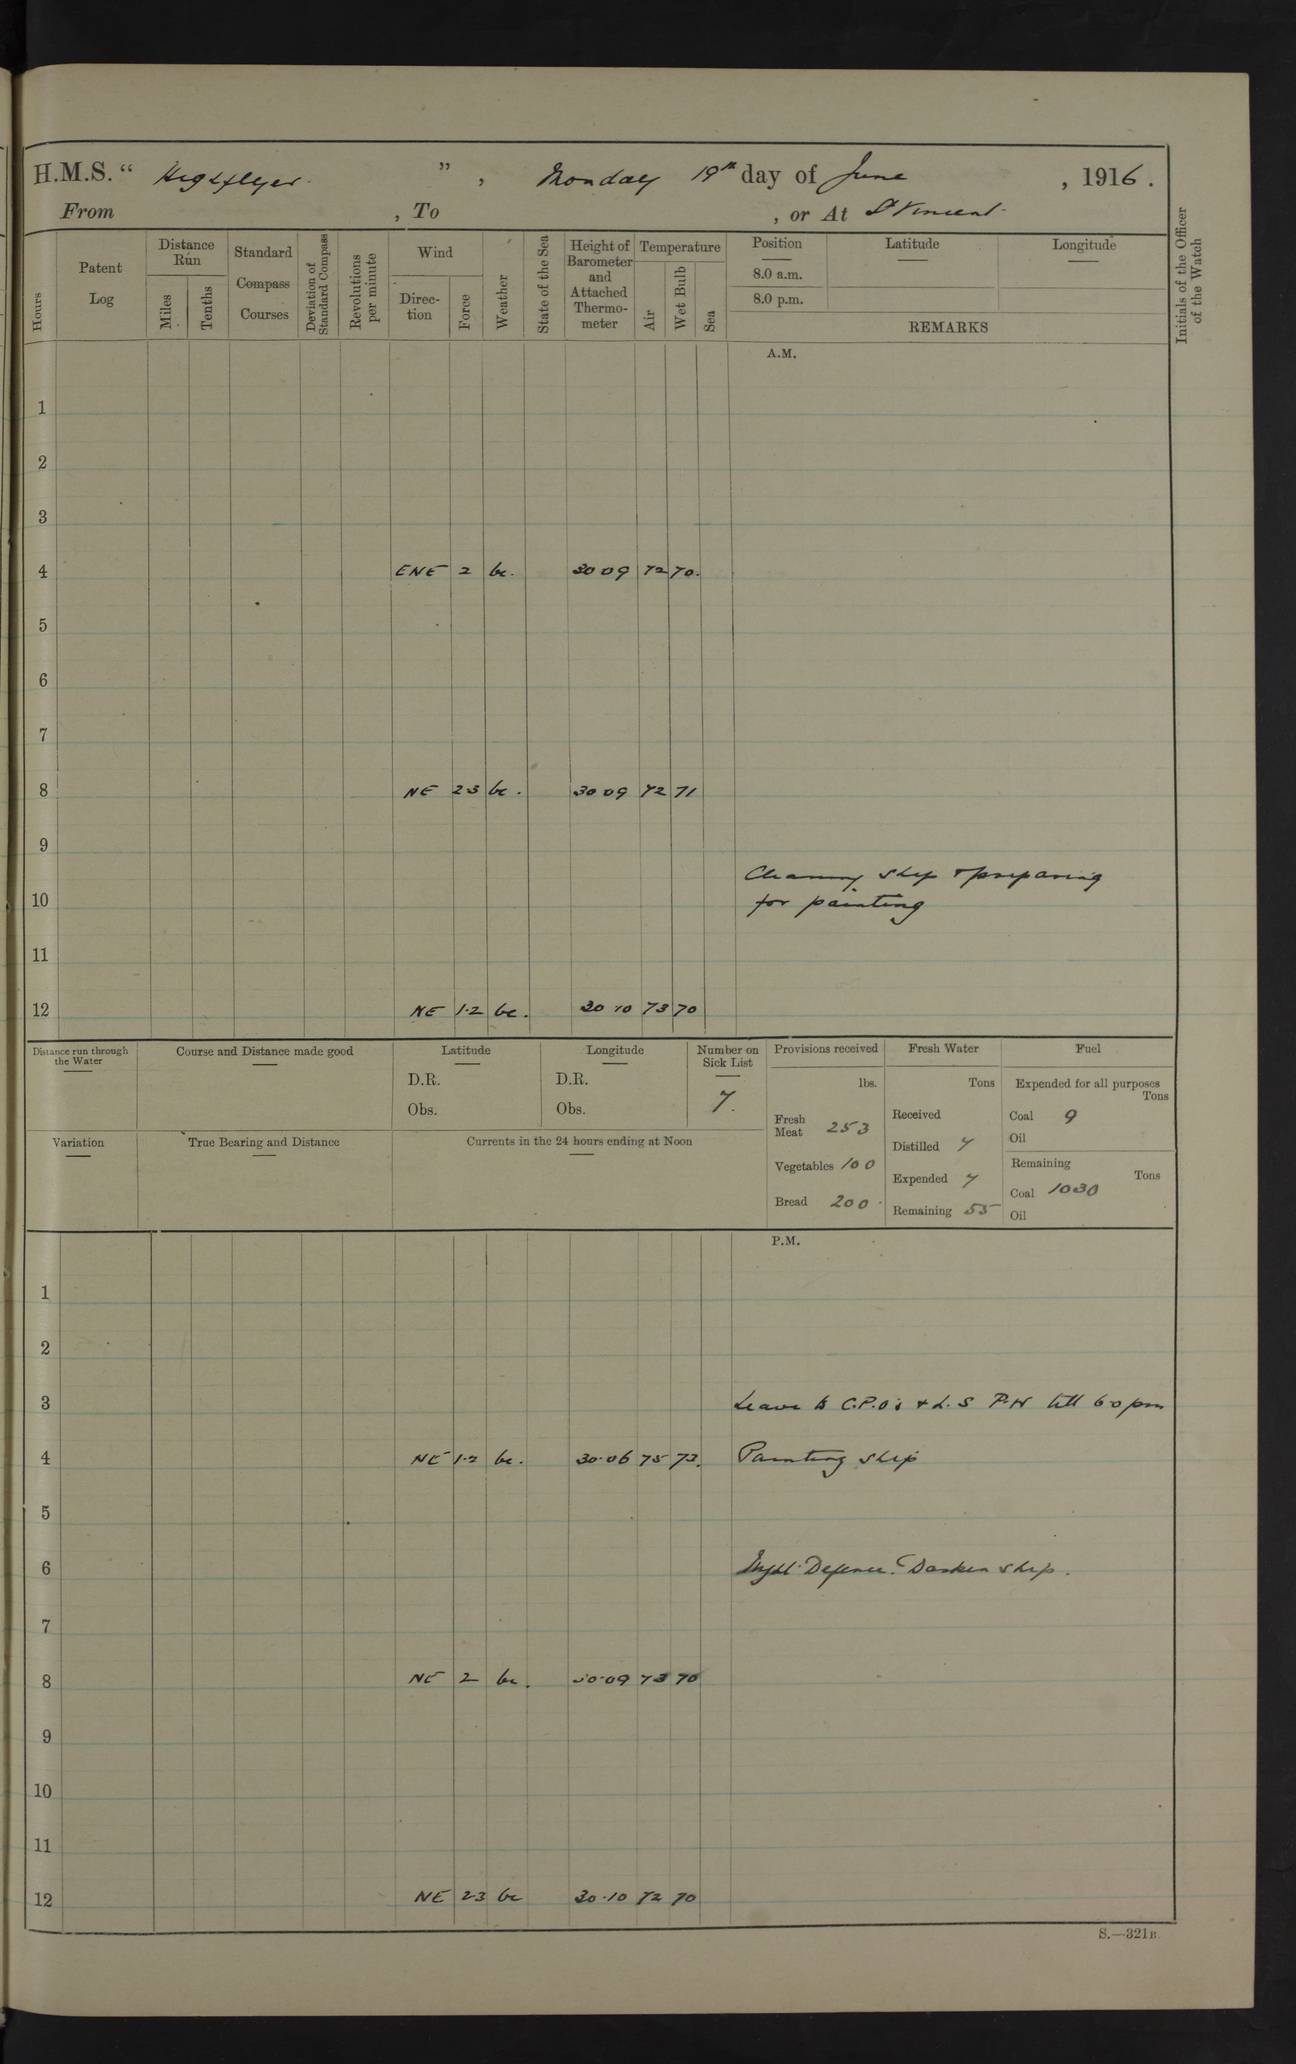 H.M.S. “ Highflyer ” , Monday 19th day of June , 1916 .
From , To , or At St Vincent
Hours
Patent Log
Distance Run
Miles
Tenths
Standard Compass Courses
Deviation of Standard Compass
Revolutions per minute
Wind
Direc-tion
Force
Weather
State of the Sea
Height of Barometer and Attached Thermo-meter
Temperature
Air
Wet Bulb
Sea
Position
8.0 a.m.
8.0 p.m.
Latitude
Longitude
REMARKS
Initials of the Officer of the Watch
A.M.
1
2
3
4 ENE 2 bc. 30 09 72 70.
5
6
7
8 NE 2 3 bc. 30 09 72 71
9
Cleaning ship & preparing
10 for painting
11
12 NE 1·2 bc. 30 10 73 70
Distance run through the Water
Course and Distance made good
Latitude
D.R.
Obs.
Longitude
D.R.
Obs.
Number on Sick List
7.
Provisions received
lbs.
Fresh Meat 253
Vegetables 100
Bread 200
Fresh Water
Tons
Received
Distilled 7
Expended 7
Remaining 55
Fuel
Expended for all purposes
Tons
Coal 9
Oil
Remaining
Tons
Coal 1030
Oil
Variation
True Bearing and Distance
Currents in the 24 hours ending at Noon
P.M.
1
2
3 Leave to C.P.O's & L.S P.W till 6 0 pm
4 NE 1·2 bc. 30·06 75 73. Painting ship
5
6 Night Defence. Darken ship.
7
8 NE 2 bc. 30·09 73 70
9
10
11
12 NE 2 3 bc 30·10 72 70
S.—321B.